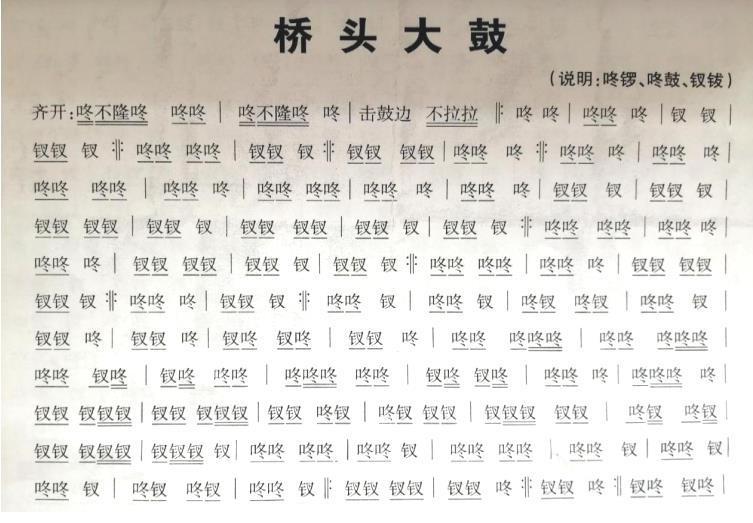 桥头大鼓
(说明:咚锣、咚鼓、钗钹)
齐开:咚不隆咚 咚咚 | 咚不隆咚 咚 | 击鼓边 不拉拉 𝄆 咚 咚 | 咚咚 咚 | 钗 钗 |
钗钗 钗 𝄇 咚咚 咚咚 | 钗钗 钗 𝄆 钗钗 钗钗 | 咚咚 咚 𝄇 咚咚 咚 | 咚咚 咚
咚咚 咚咚 | 咚咚 咚 | 咚咚 咚咚 | 咚咚 咚 | 咚咚 咚 | 钗钗 钗 | 钗钗 钗 |
钗钗 钗钗 | 钗钗 钗 | 钗钗 钗钗 | 钗钗 钗 | 钗钗 钗 𝄇 咚咚 咚咚 | 咚咚 咚
咚咚 咚 | 钗钗 钗钗 | 钗钗 钗 | 钗钗 钗 𝄆 咚咚 咚咚 | 咚咚 咚 | 钗钗 钗钗 |
钗钗 钗 𝄆 咚咚 咚 | 钗钗 钗 𝄆 咚咚 钗 | 咚咚 钗 | 咚钗 咚钗 | 咚咚 钗 |
钗钗 咚 | 钗钗 咚 | 钗咚 钗咚 | 钗钗 咚 | 咚咚 咚咚咚 | 咚咚 咚咚咚
咚咚 钗咚 | 钗咚 咚咚 | 咚咚咚 咚咚 | 钗咚 钗咚 | 咚咚 咚 | 咚咚咚 咚
钗钗 钗钗钗 | 钗钗 钗钗钗 | 钗钗 咚钗 | 咚钗 钗钗 | 钗钗钗 钗钗 | 咚钗 咚钗 |
钗钗 钗钗钗 | 钗钗钗 钗 | 咚咚 咚咚 | 咚咚 钗 | 咚咚 咚咚 | 咚咚 钗 | 咚咚 钗 |
咚咚 钗 | 咚钗 咚钗 | 咚咚 钗 𝄇 钗钗 钗钗 | 钗钗 咚 𝄇 钗钗 咚 𝄆 钗咚 钗咚 |